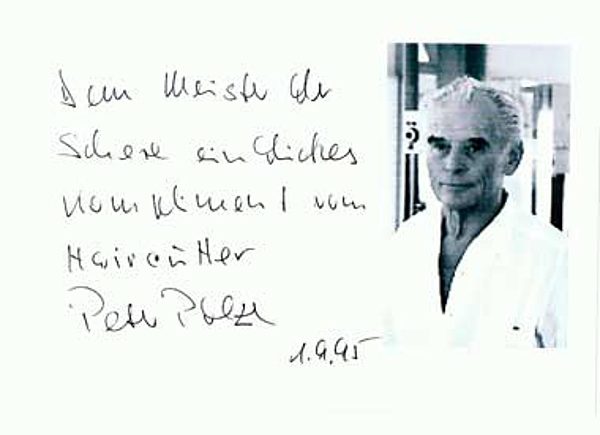 Dem Meister der
Schere ein dickes
Kompliment vom
Haircutter
Peter
1.9.95